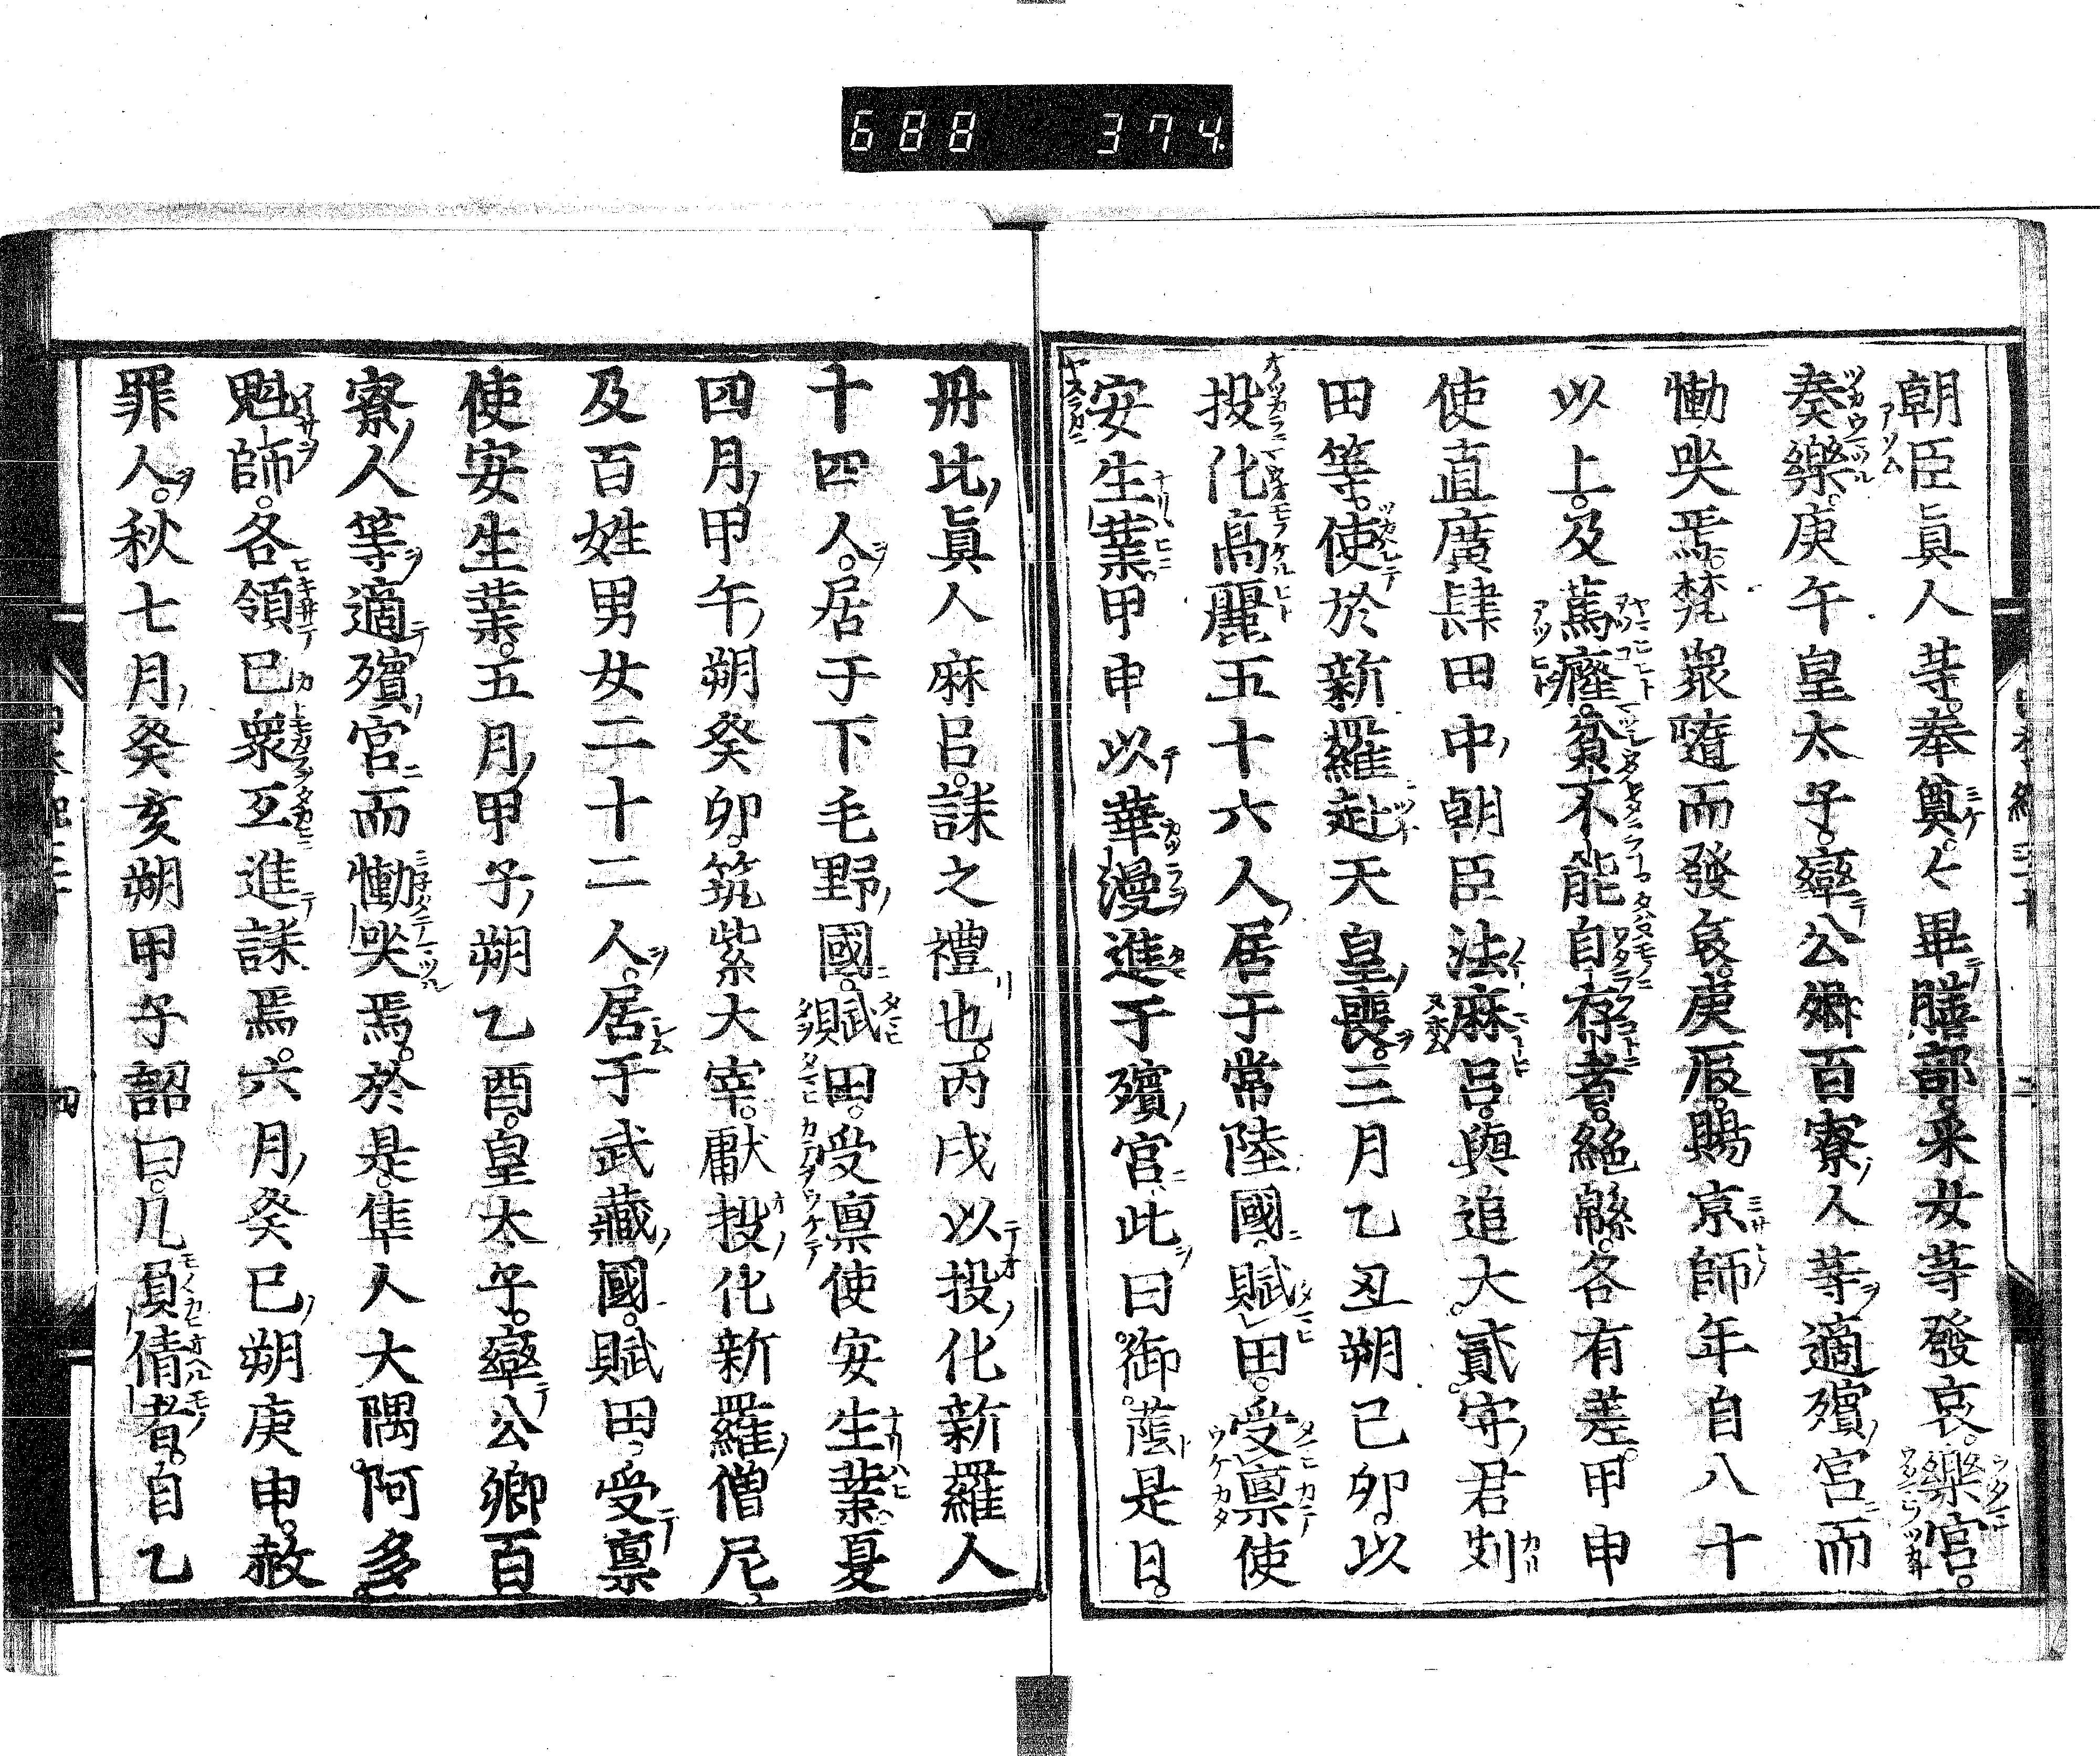 688 374
朝臣眞人等奉奠〻畢膳部采女等發哀樂官
奏樂庚午皇太子率公卿百寮人等適殯宮而
慟哭焉梵衆隨而發哀庚辰賜京師年自八十
以上及篤癃貧不能自存者絁緜各有差甲申
使直廣肆田中朝臣法麻呂與追大貳守君苅
田等使於新羅赴天皇喪三月乙丑朔己卯以
投化高麗五十六人居于常陸國賦田受禀使
安生業甲申以華漫進于殯宮此曰御蔭是日
丹比眞人麻呂誄之禮也丙戌以投化新羅人
十四人居于下毛野國賦田受禀使安生業夏
四月甲午朔癸卯筑紫大宰獻投化新羅僧尼
及百姓男女二十二人居于武藏國賦田受禀
使安生業五月甲子朔乙酉皇太子率公卿百
寮人等適殯宮而慟哭焉於是隼人大隅阿多
魁師各領已衆互進誄焉六月癸巳朔庚申赦
罪人秋七月癸亥朔甲子詔曰凡負債者自乙